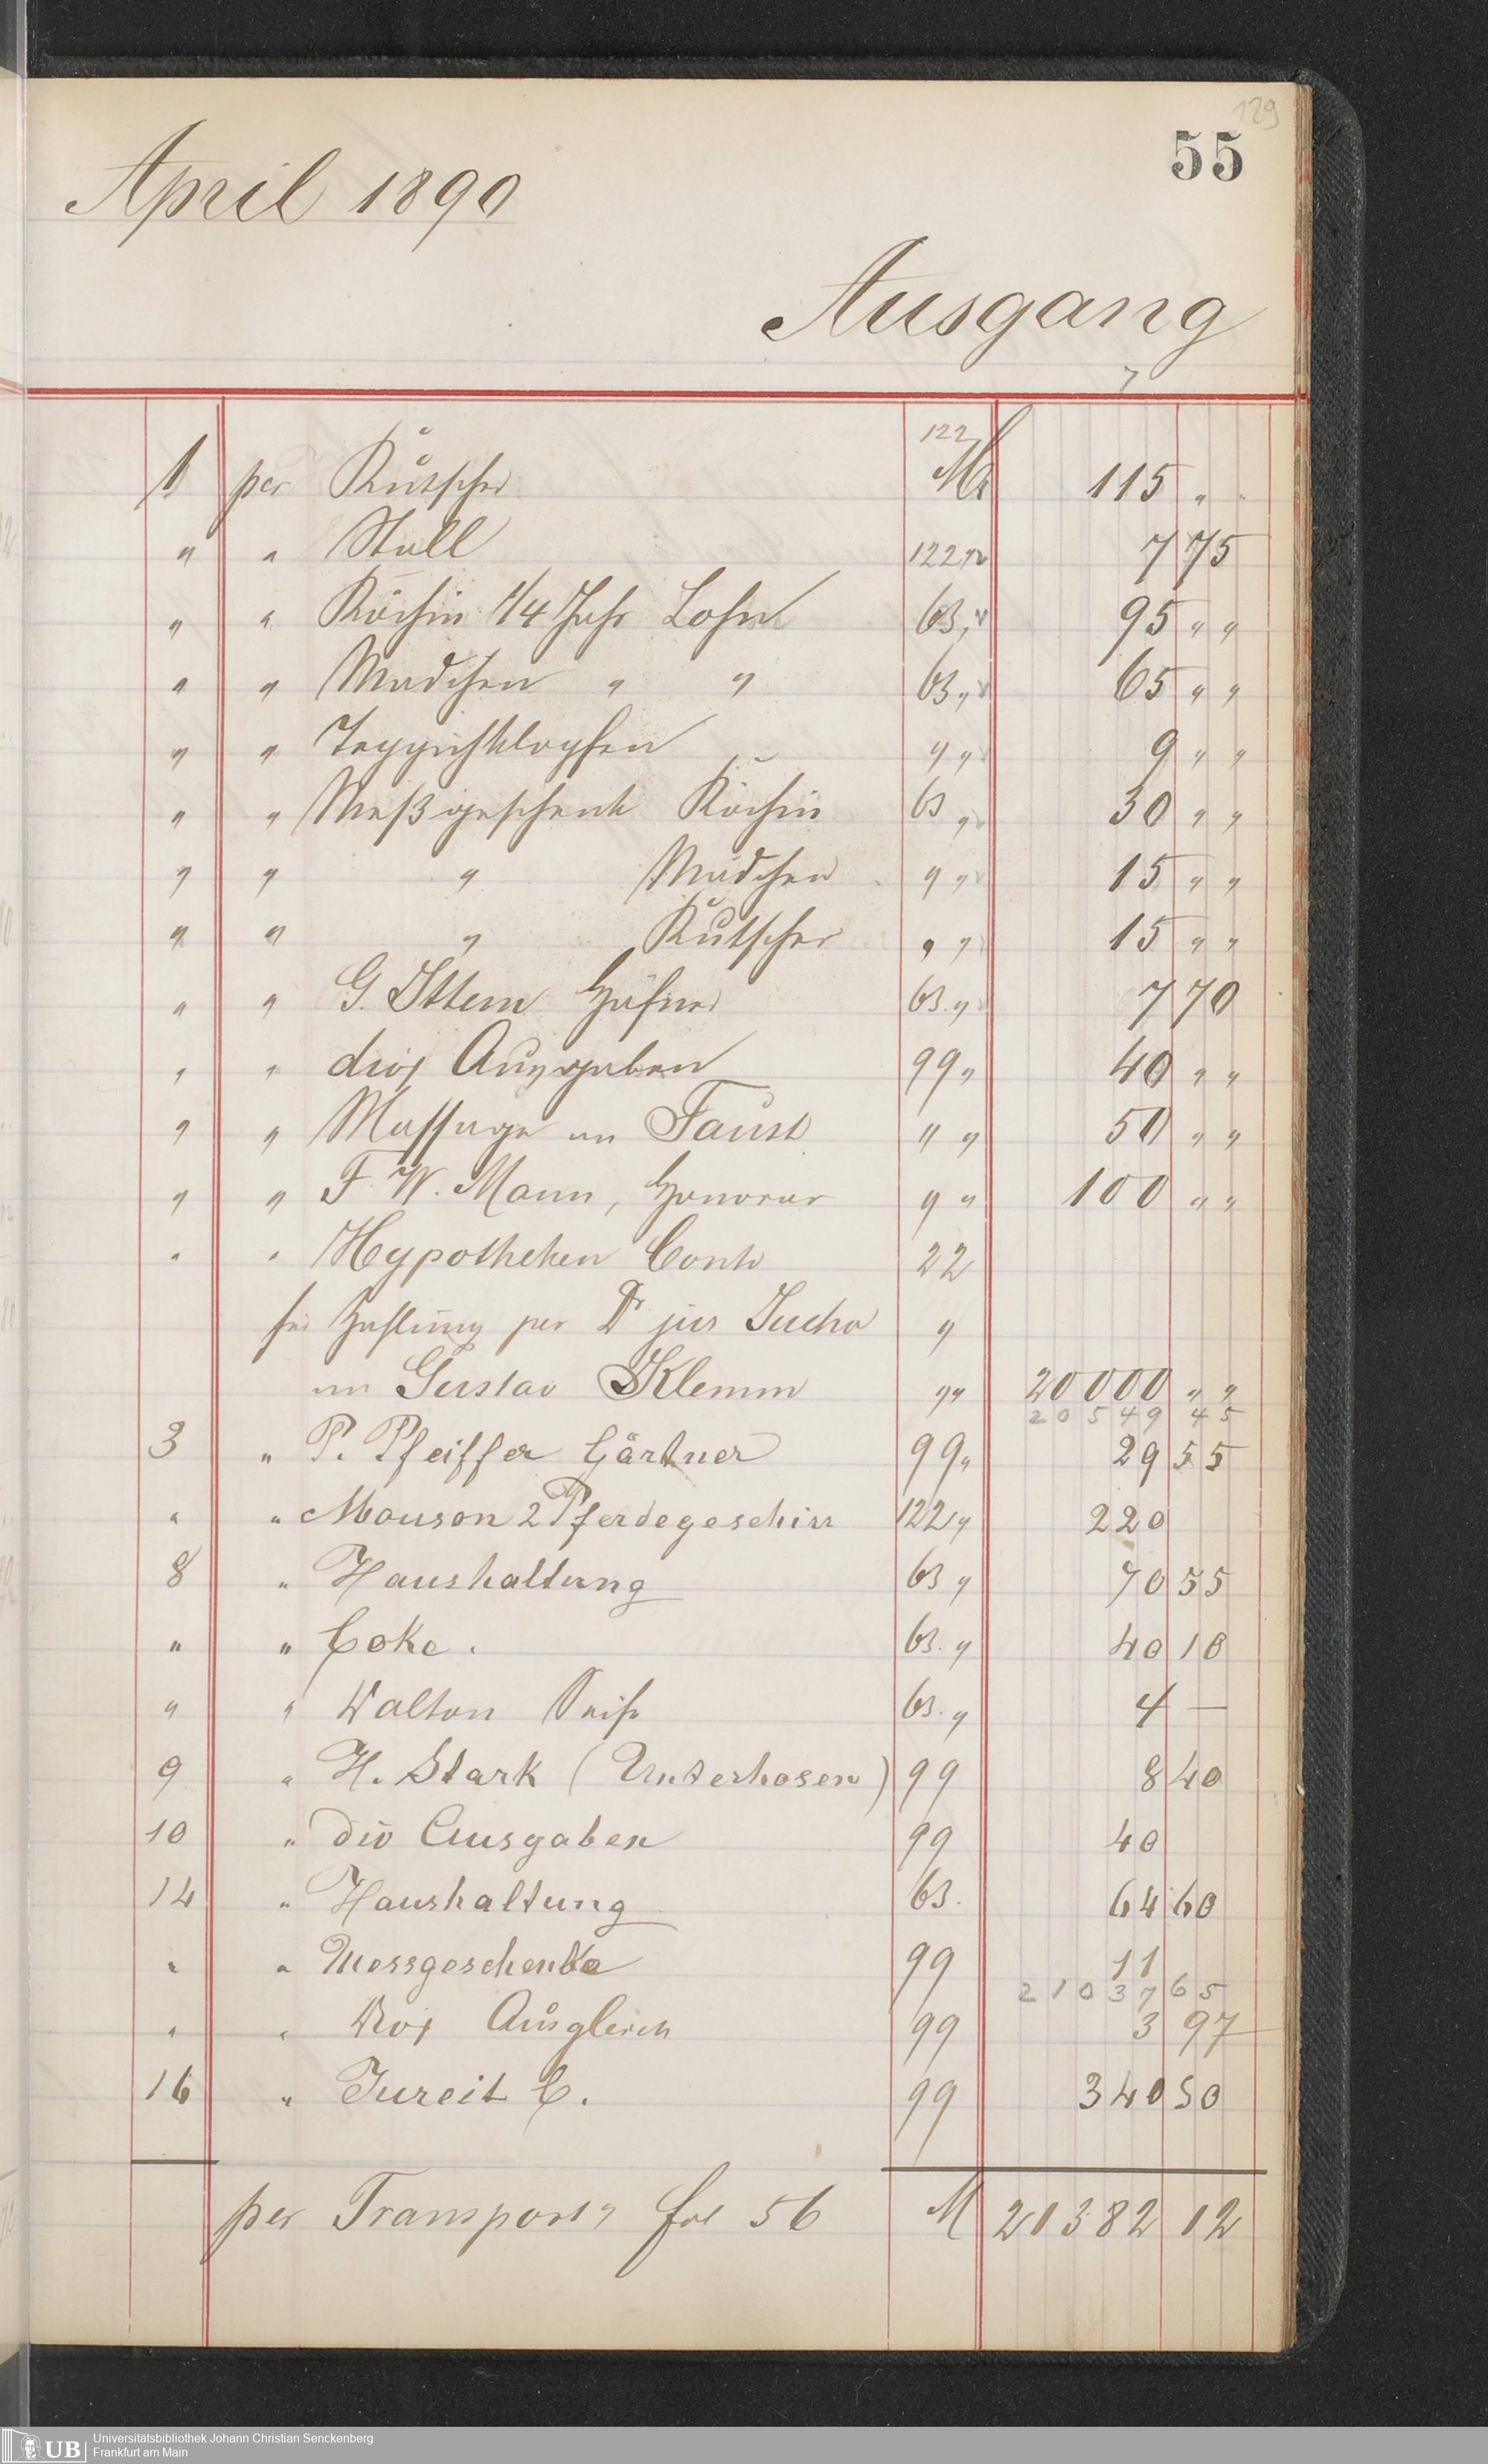 129
55
April 1890
Ausgang
1 per Kutscher 122 M 115 "
" " Stall 122 " 7 75
" " Köchin 1/4 Jahr Lohn 63 " 95 " "
" " Mädchen " " 63 " 65 " "
" " Teppichklopfen " " 9 " "
" " Meßgeschenk Köchin 63 " 30 " "
" " " Mädchen " " 15 " "
" " " Kutscher " " 15 " "
" " G. Ittem Häfner 63 " 7 70
" " div Ausgaben 99 " 40 " "
" " Massage an Faust " " 50 " "
" " F. W. Mann, Honorar " " 100 " "
" " Hypotheken Conto 22
für Zahlung per Dr jur Jucho "
an Gustav Klemm " " 20000 " "
20549 45
3 " P. Pfeiffer Gärtner 99 " 29 55
" " Mouson 2 Pferdegeschirr 122 " 220
8 " Haushaltung 63 " 70 55
" " Coke. 63. " 40 10
" " Walton Seife 63. " 4 —
9 " H. Stark (Unterhosen) 99 8 40
10 " div Ausgaben 99 40
14 " Haushaltung 63. 64 60
" " Messgeschenke 99 11
21037 65
" " Ausgleich 99 3 97
16 " Jureit C. 99 340 50
per Transport fol 56 M 21382 12
UB
Universitätsbibliothek Johann Christian Senckenberg
Frankfurt am Main